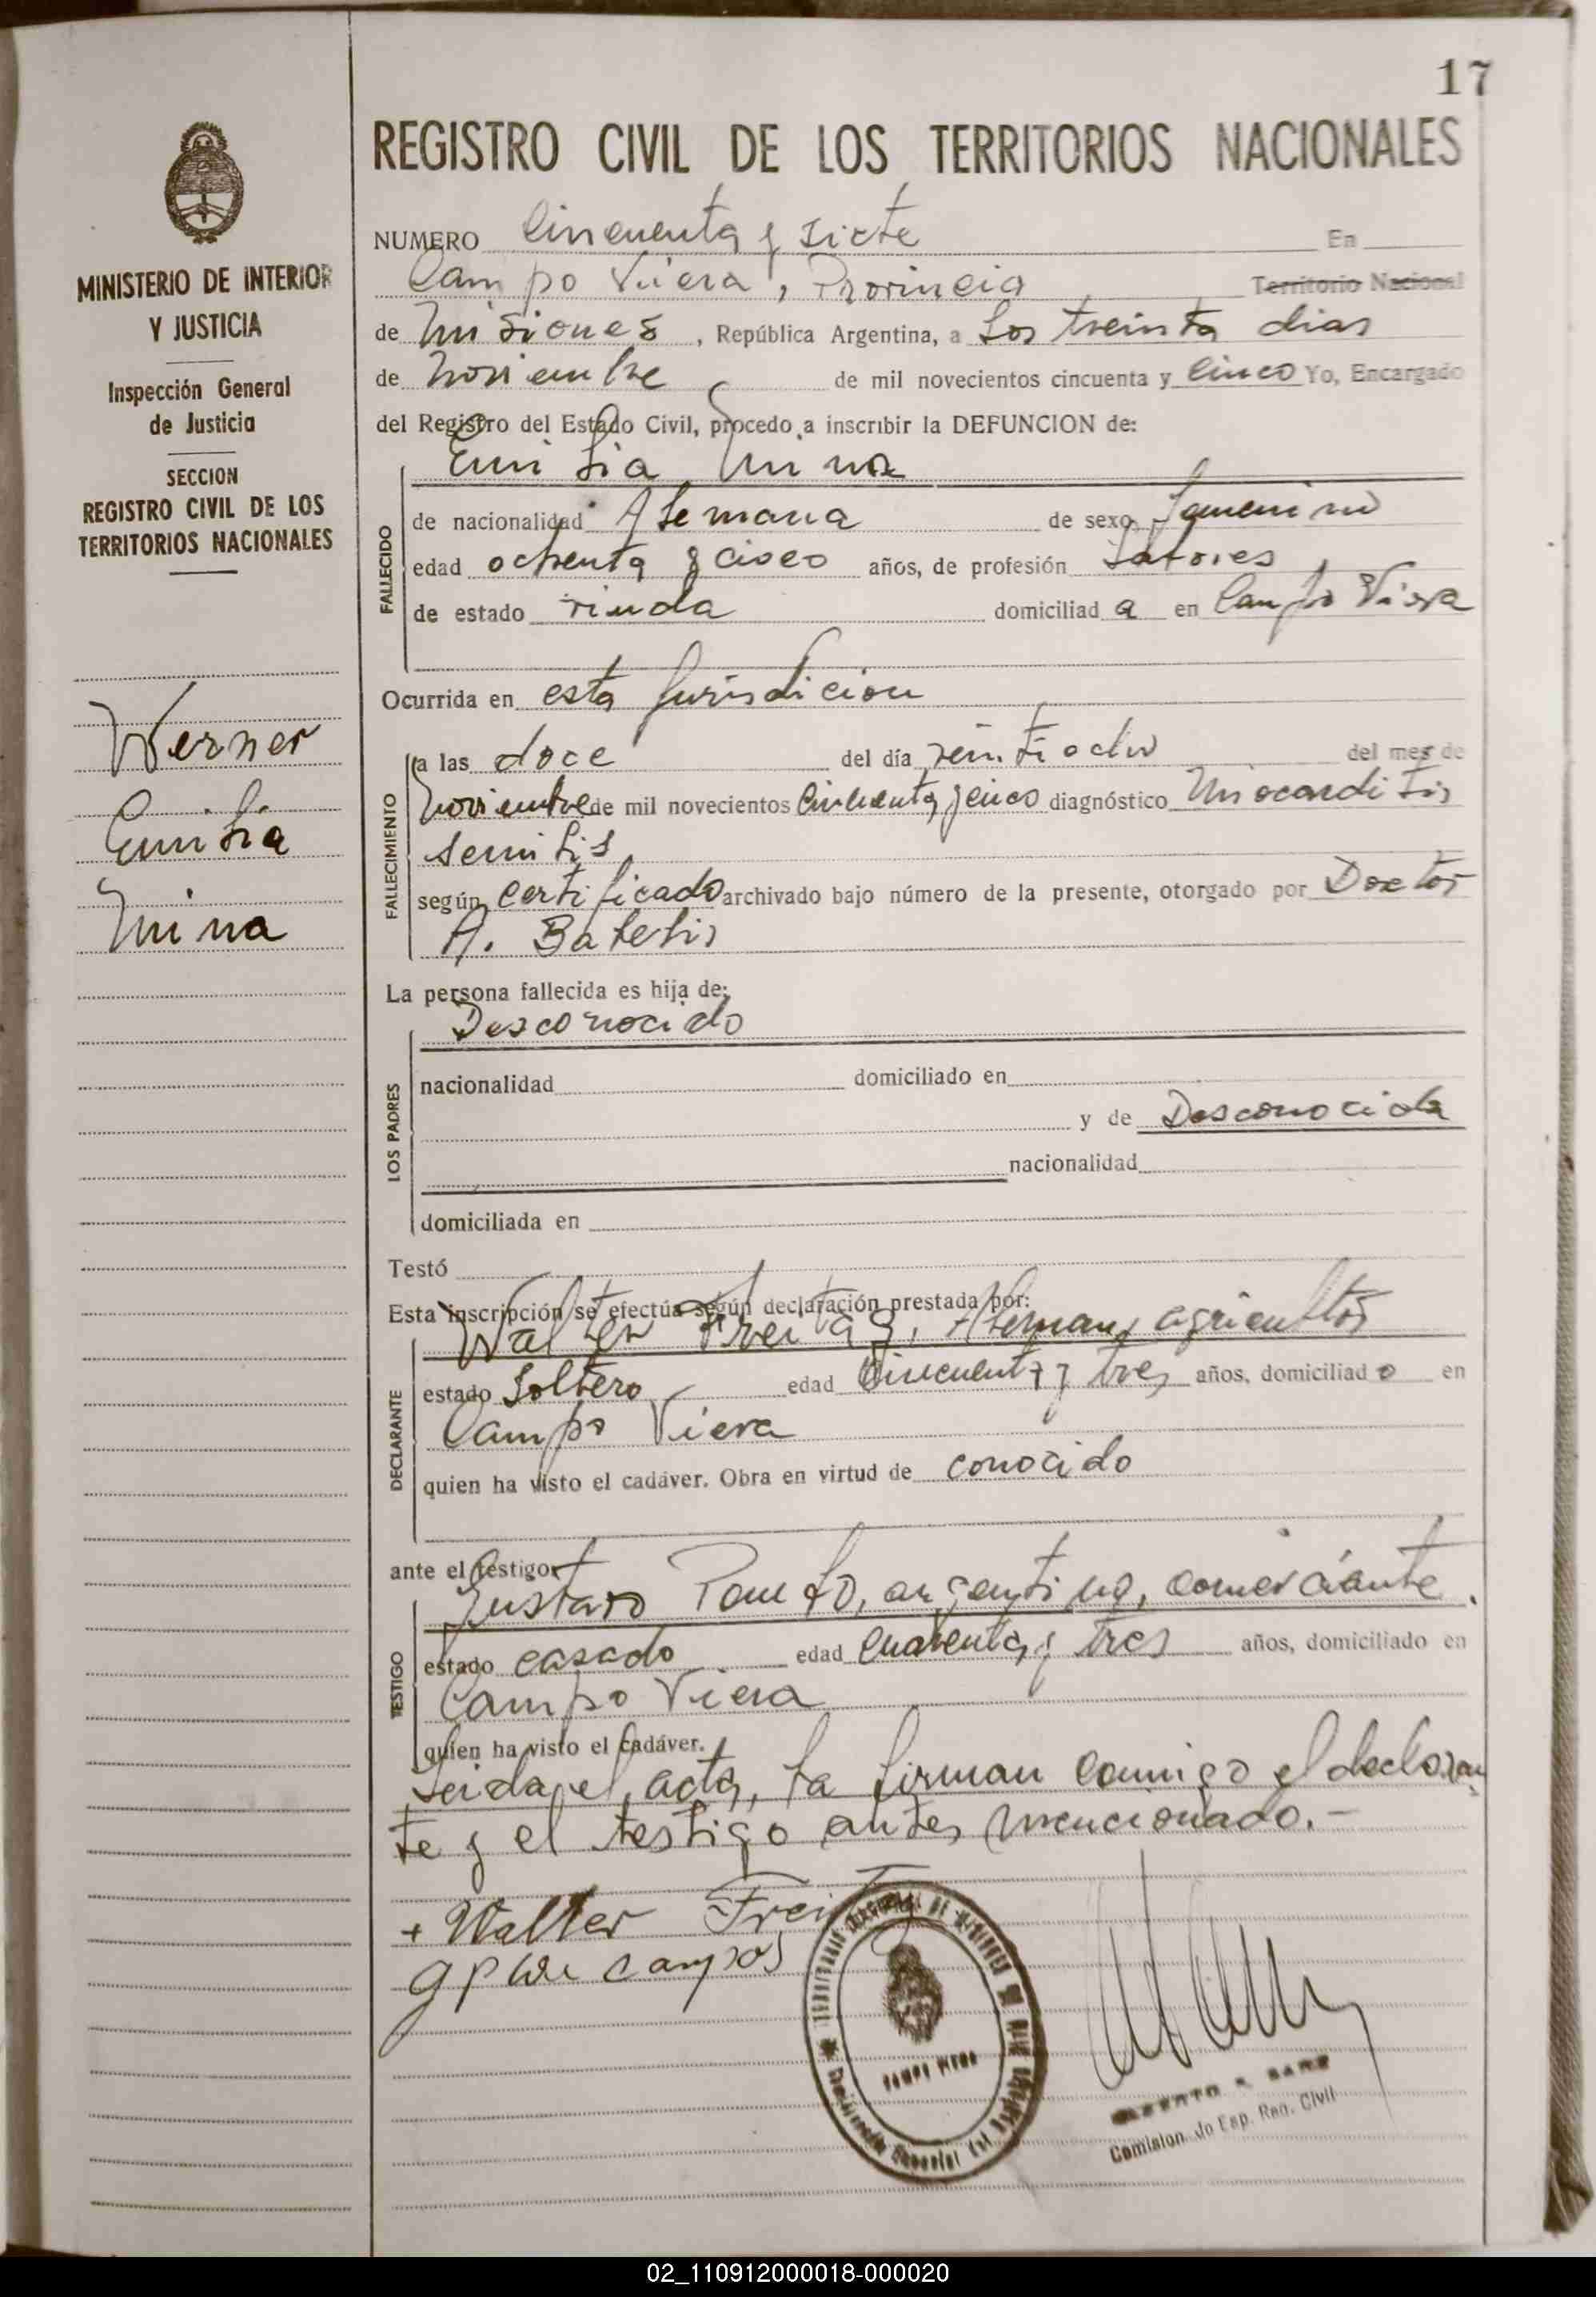 17
REGISTRO CIVIL DE LOS TERRITORIOS NACIONALES
MINISTERIO DE INTERIOR
Y JUSTICIA
Inspección General
de Justicia
SECCION
REGISTRO CIVIL DE LOS
TERRITORIOS NACIONALES
Werner
Emilia
Mina
NUMERO Cincuenta y siete En
Campo Viera, Provincia Territorio Nacional
de Misiones, República Argentina, a los treinta dias
de noviembre de mil novecientos cincuenta y cinco Yo, Encargado
del Registro del Estado Civil, procedo a inscribir la DEFUNCION de:
Emilia Mina
FALLECIDO
de nacionalidad Alemana de sexo femenino
edad ochenta y cinco años, de profesión labores
de estado viuda domiciliad a en Campo Viera
Ocurrida en esta Jurisdicion
FALLECIMIENTO
a las doce del día veintiocho del mes de
noviembre de mil novecientos cincuenta y cinco diagnóstico Miocarditis
senilis
según certificado archivado bajo número de la presente, otorgado por Doctor
A.
La persona fallecida es hija de:
Desconocido
LOS PADRES
nacionalidad domiciliado en
y de Desconocida
nacionalidad
domiciliada en
Testó
Esta inscripción se efectúa según declaración prestada por:
Walter Freitag, Aleman, agricultor
DECLARANTE
estado soltero edad cincuenta y tres años, domiciliad o en
Campo Viera
quien ha visto el cadáver. Obra en virtud de conocido
ante el testigo:
Gustavo argentino, comerciante
TESTIGO
estado casado edad cuarenta y tres años, domiciliado en
Campo Viera
quien ha visto el cadáver.
Leida el acta, la firman conmigo el declaran
te y el testigo antes mencionado.-
+ Walter Freitag
CAMPO VIERA
Comision do Esp. Reg. Civil
02_110912000018-000020